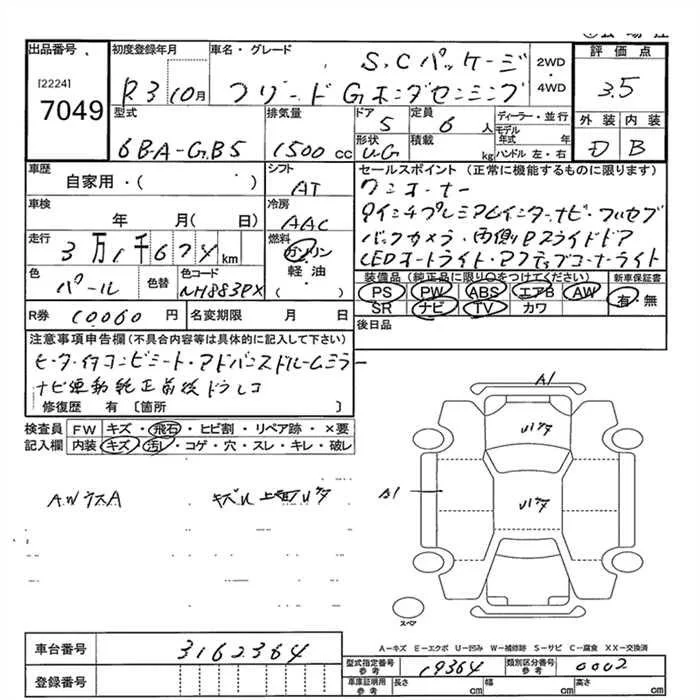 出品番号
[2224]
7049
初度登録年月
R3 10月
車名・グレード
S.Cパッケージ
フリード Gホンダセンシング
2WD
・
4WD
評価点
3.5
外装 内装
D B
型式
6BA-GB5
排気量
1500 cc
ドア
5
定員
6 人
形状
U.G
積載
kg
ディーラー・並行
モデル年式 年
ハンドル 左・右
車歴
自家用・( )
シフト
AT
車検
年 月( 日)
冷房
AAC
走行
3万1千674km
燃料
ガソリン
軽油
( )
色
パール
色替
色コード
NH883PX
R券 10060円
名変期限 月 日
セールスポイント (正常に機能するものに限ります)
ワンオーナー
9インチプレミアムインターナビ・フルセグ
バックカメラ・両側Pスライドドア
LEDオートライト・アクティブコーナーライト
装備品(純正品に限り〇をつけてください)
新車保証書
PS PW ABS エアB AW
SR ナビ TV カワ
有・無
後日品
注意事項申告欄(不具合内容等は具体的に記入して下さい)
ヒーター付コンビシート・アドバンスドルームミラー
ナビ連動純正前後ドラレコ
修復歴 有 〔箇所 〕
検査員
記入欄
FW キズ・飛石・ヒビ割・リペア跡・×要
内装 キズ・汚レ・コゲ・穴・スレ・キレ・破レ
AWウスA
A1
A1
スペア
A-キズ E-エクボ U-凹み W-補修跡 S-サビ C-腐食 XX-交換済
車台番号
3162364
登録番号
型式指定番号 参考
19364
類別区分番号 参考
0002
車庫証明用 参考
長さ cm
幅 cm
高さ cm